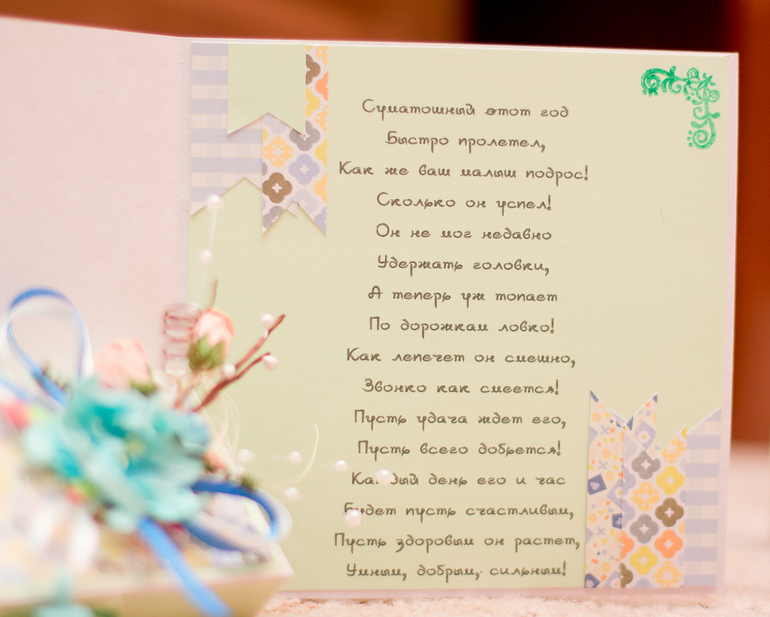 Суматошный этот год
Быстро пролетел,
Как же ваш малыш подрос!
Сколько он успел!
Он не мог недавно
Удержать головки,
А теперь уж топает
По дорожкам ловко!
Как лепечет он смешно,
Звонко как смеется!
Пусть удача ждет его,
Пусть всего добьется!
Каждый день его и час
Будет пусть счастливым,
Пусть здоровым он растет,
Умным, добрым, сильным!